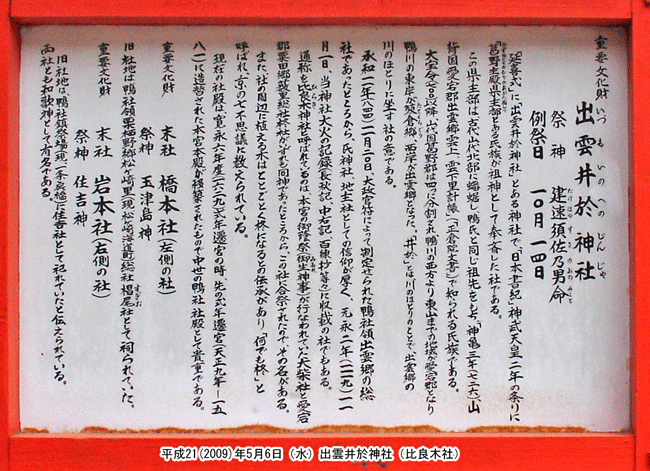 重要文化財
出雲井於神社
いつもいのへのじんじゃ
祭神 建速須佐乃男命
たけはやすさのおのみこと
例祭日 一〇月一四日
「延喜式」に「出雲井於神社」とある神社で、「日本書紀」神武天皇二年の条りに
「葛野主殿県主部」とある氏族が祖神として奉斎した社である。
この県主部は古代山代北部に蟠踞し鴨氏と同じ祖先をもち、「神亀三年(七二六)、山
背国愛宕郡出雲郷雲上、雲下里計帳」(正倉院文書)で知られる氏族である。
大宝令(七〇一)以降、山代国葛野郡は四つに分割され鴨川の西々より東山までの地域が愛宕郡となり
鴨川の東岸が蓼倉郷、西岸が出雲郷となった。「井於」とは、川のほとりのことで、出雲郷の
川のほとりに坐す社の意である。
承和一一年(八四四)一二月二〇日、大政官符によって制定せられた鴨社領出雲郷の総
社であったところから、氏神社、地主社としての信仰が厚く、元永二年(一一一九)一一
月一日、当神社大火の記録(長秋記、中右記、百練抄等々)に収載の社でもある。
通称を比良木神社と呼ばれているのは、本宮の御蔭祭(御生神事)が行なわれていた大柴社と愛宕
郡栗田郷藪里総社柊社がいずれも同神であったところから、この社に合祭されたので、その名がある。
また、社の周辺に植える木はことごとく柊になるとの伝承があり「何でも柊」と
呼ばれ、京の七不思議に数えられている。
現在の社殿は、寛永六年度(一六二九)式年遷宮の時、先の式年遷宮(天正九年―一五
八一)に造替された本宮本殿が移築されたもので中世の鴨社社殿として貴重である。
重要文化財
末社 橋本社(左側の社)
祭神 玉津島神
旧社地は、鴨社領栗栖野郷松ヶ崎里(現、松ヶ崎海道町)総社椙尾社として祠られていた。
重要文化財
末社 岩本社(右側の社)
祭神 住吉神
旧社地は、鴨社鎮祭場(現、一条戻橋)に住吉社として祀れていたと伝えられている。
両社とも和歌神として有名である。
平成21(2009)年5月6日(水) 出雲井於神社(比良木社)